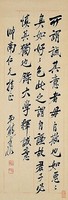 所謂誠其意者毋自欺也如惡〻
臭如好〻色此之謂自謙故君子必
慎其獨也 大學
師南仁兄 正